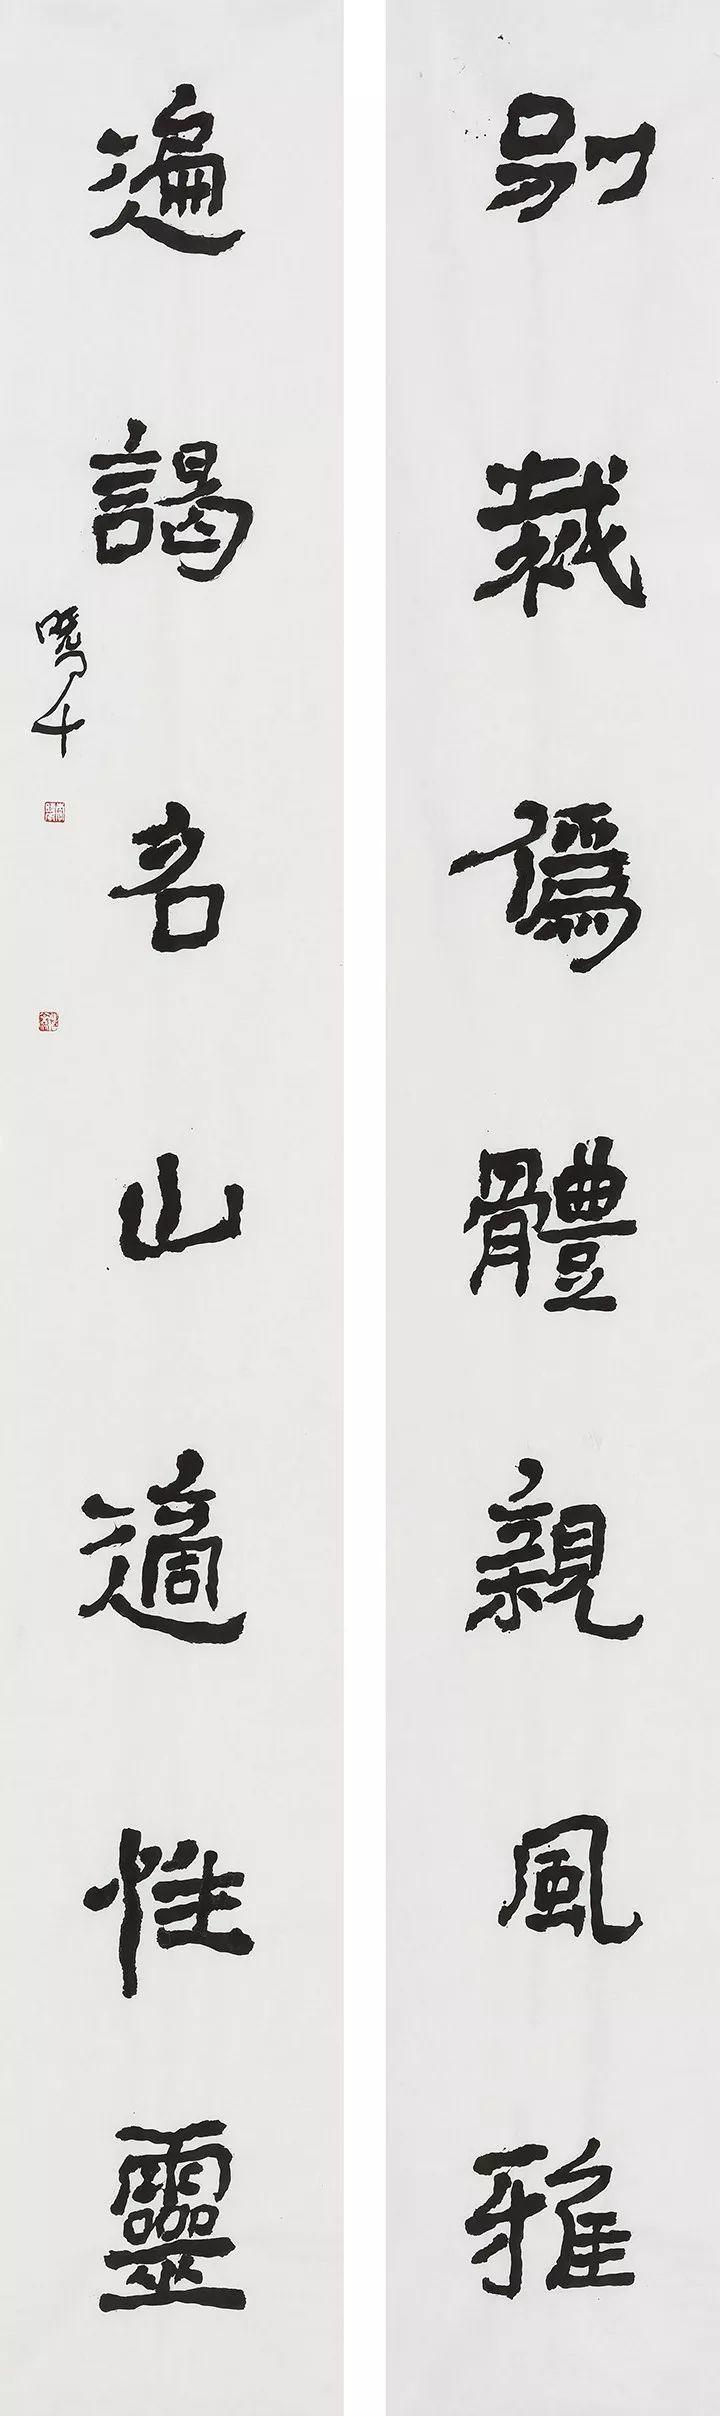 別裁偽體親風雅
遍謁名山適性靈